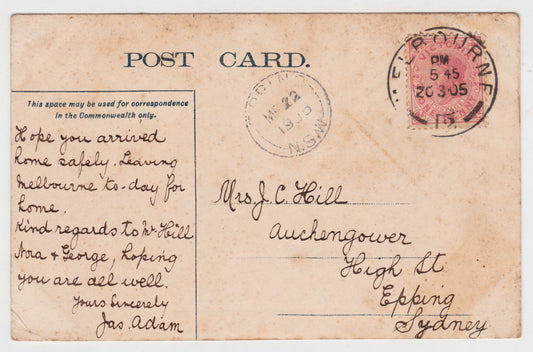 POST CARD.
This space may be used for correspondence
in the Commonwealth only.
Hope you arrived
home safely. Leaving
Melbourne to-day for
home.
Kind regards to Mr Hill
Nora & George, hoping
you are all well.
Yours Sincerely
Jas. Adam
Mrs J. C. Hill
Auchengower
High St
Epping
Sydney
VICTORIA
MELBOURNE
PM
5 45
20 3 05
15
EPPING
MR 22
1905
N.S.W